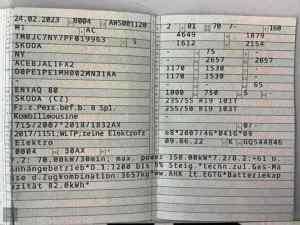 24.02.2023 8004 AWS001120
M1 AC
TMBJC7NY7PF019963
SKODA
NY
ACEBJALIFX2
ENYAQ 80
SKODA (CZ)
Fz.z.Pers.bef.b. 8 Spl.
Kombilimousine
715/2007*2018/1832AX
2017/1151;WLTP;reine Elektrofz
Elektro
0004 30AX -
.2: 70.00kW/30min; max. power 150.00kW*7.2/8.2:+61 b.
nhängebetrieb*O.1:1200 bis 8% Steig.*techn.zul.Ges-Ma
sse d.Zugkombination:3657kg*ww.AHK lt.EGTG*Batteriekap
zität 82.0kWh*
2 01 70 /- 160
4649 - 1879
1612 - 2154
- 75 -
- 2657 - 2657
1170 1530 - -
1170 1530 - -
- 65 - -
1000 750 5 -
235/55 R19 101T
255/50 R19 103T
- 0/-
e8*2007/46*0416*09
09.06.22 K GQ544846